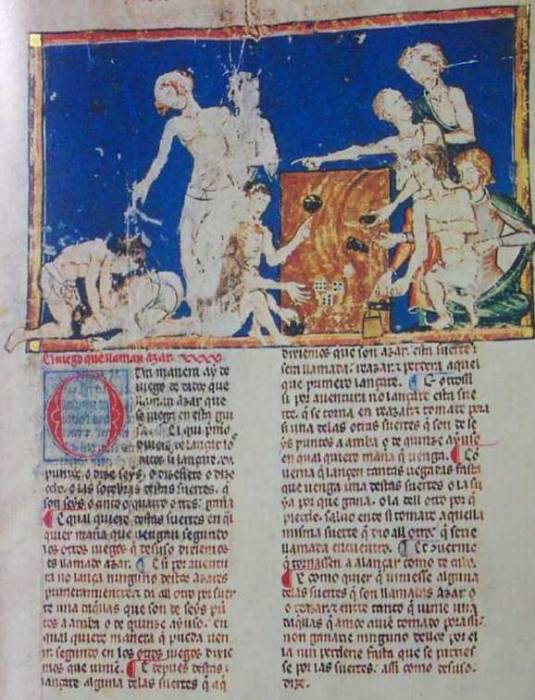 El iuego que llaman azar
Otra manera ay de
iuego de dados que
llaman azar que
se iuega en esta gui
sa. El que primero
los dados lançare si
puntos o dize seys, o dizesiete o dize
ocho, o las soçobras destas suertes, q̃
son seys o cinco o quatro o tres, gana
E qual quiere destas suertes en q̃l
quier manera que uengan segundo
los otros iuegos q̃ desuso dixiemos
es llamado azar. E si por auentu
ra no lança ninguno destos azares
primeramientre τ da all otro por suer
te una daq̃llas que son de seys pũ
tos a arriba o de quinze ayuso, en
qual quiere manera q̃ pueda uen
ir segundo en los otros iuegos dixie
mos que uinie. E depues destas
lançare alguna delas suertes q̃ aq̃
dixiemos que son azar, esta suerte
sera llamada reazar τ perdera aquel
que primero lançare. E otrossi
si por auentura no lançare esta sue
rte, q̃ se torna en reazar τ tomare pora
si una delas otras suertes q̃ son de se
ys puntos a arriba o de quinze ayuso
en qual quiere manera q̃ uenga. Co
uerna q̃ lançen tantas uegadas fasta
que uenga una destas suertes o la su
ya por que gana, o la dell otro por q̃
pierde, saluo ende si tomare aquella
misma suerte q̃ dio all otro, q̃ serie
llamada encuentro. Et conuernie
q̃ tornassen a alançar como de cabo.
E como quier q̃ uiniesse alguna
delas suertes q̃ son llamadas azar o
reazar, τ entre tanto q̃ uinie una
daq̃llas q̃ amos auien tomado pora si
non ganarie ninguno dellos por el
la nin perderie fasta que se parties
se por las suertes, assi como desuso
dize.